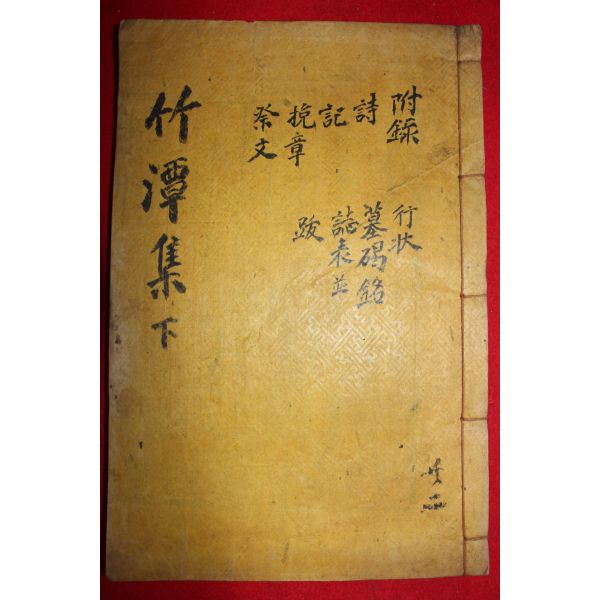 竹潭集 下
附錄
詩
記
挽章
祭文
行状
墓碣銘
誌表並
跋
共二